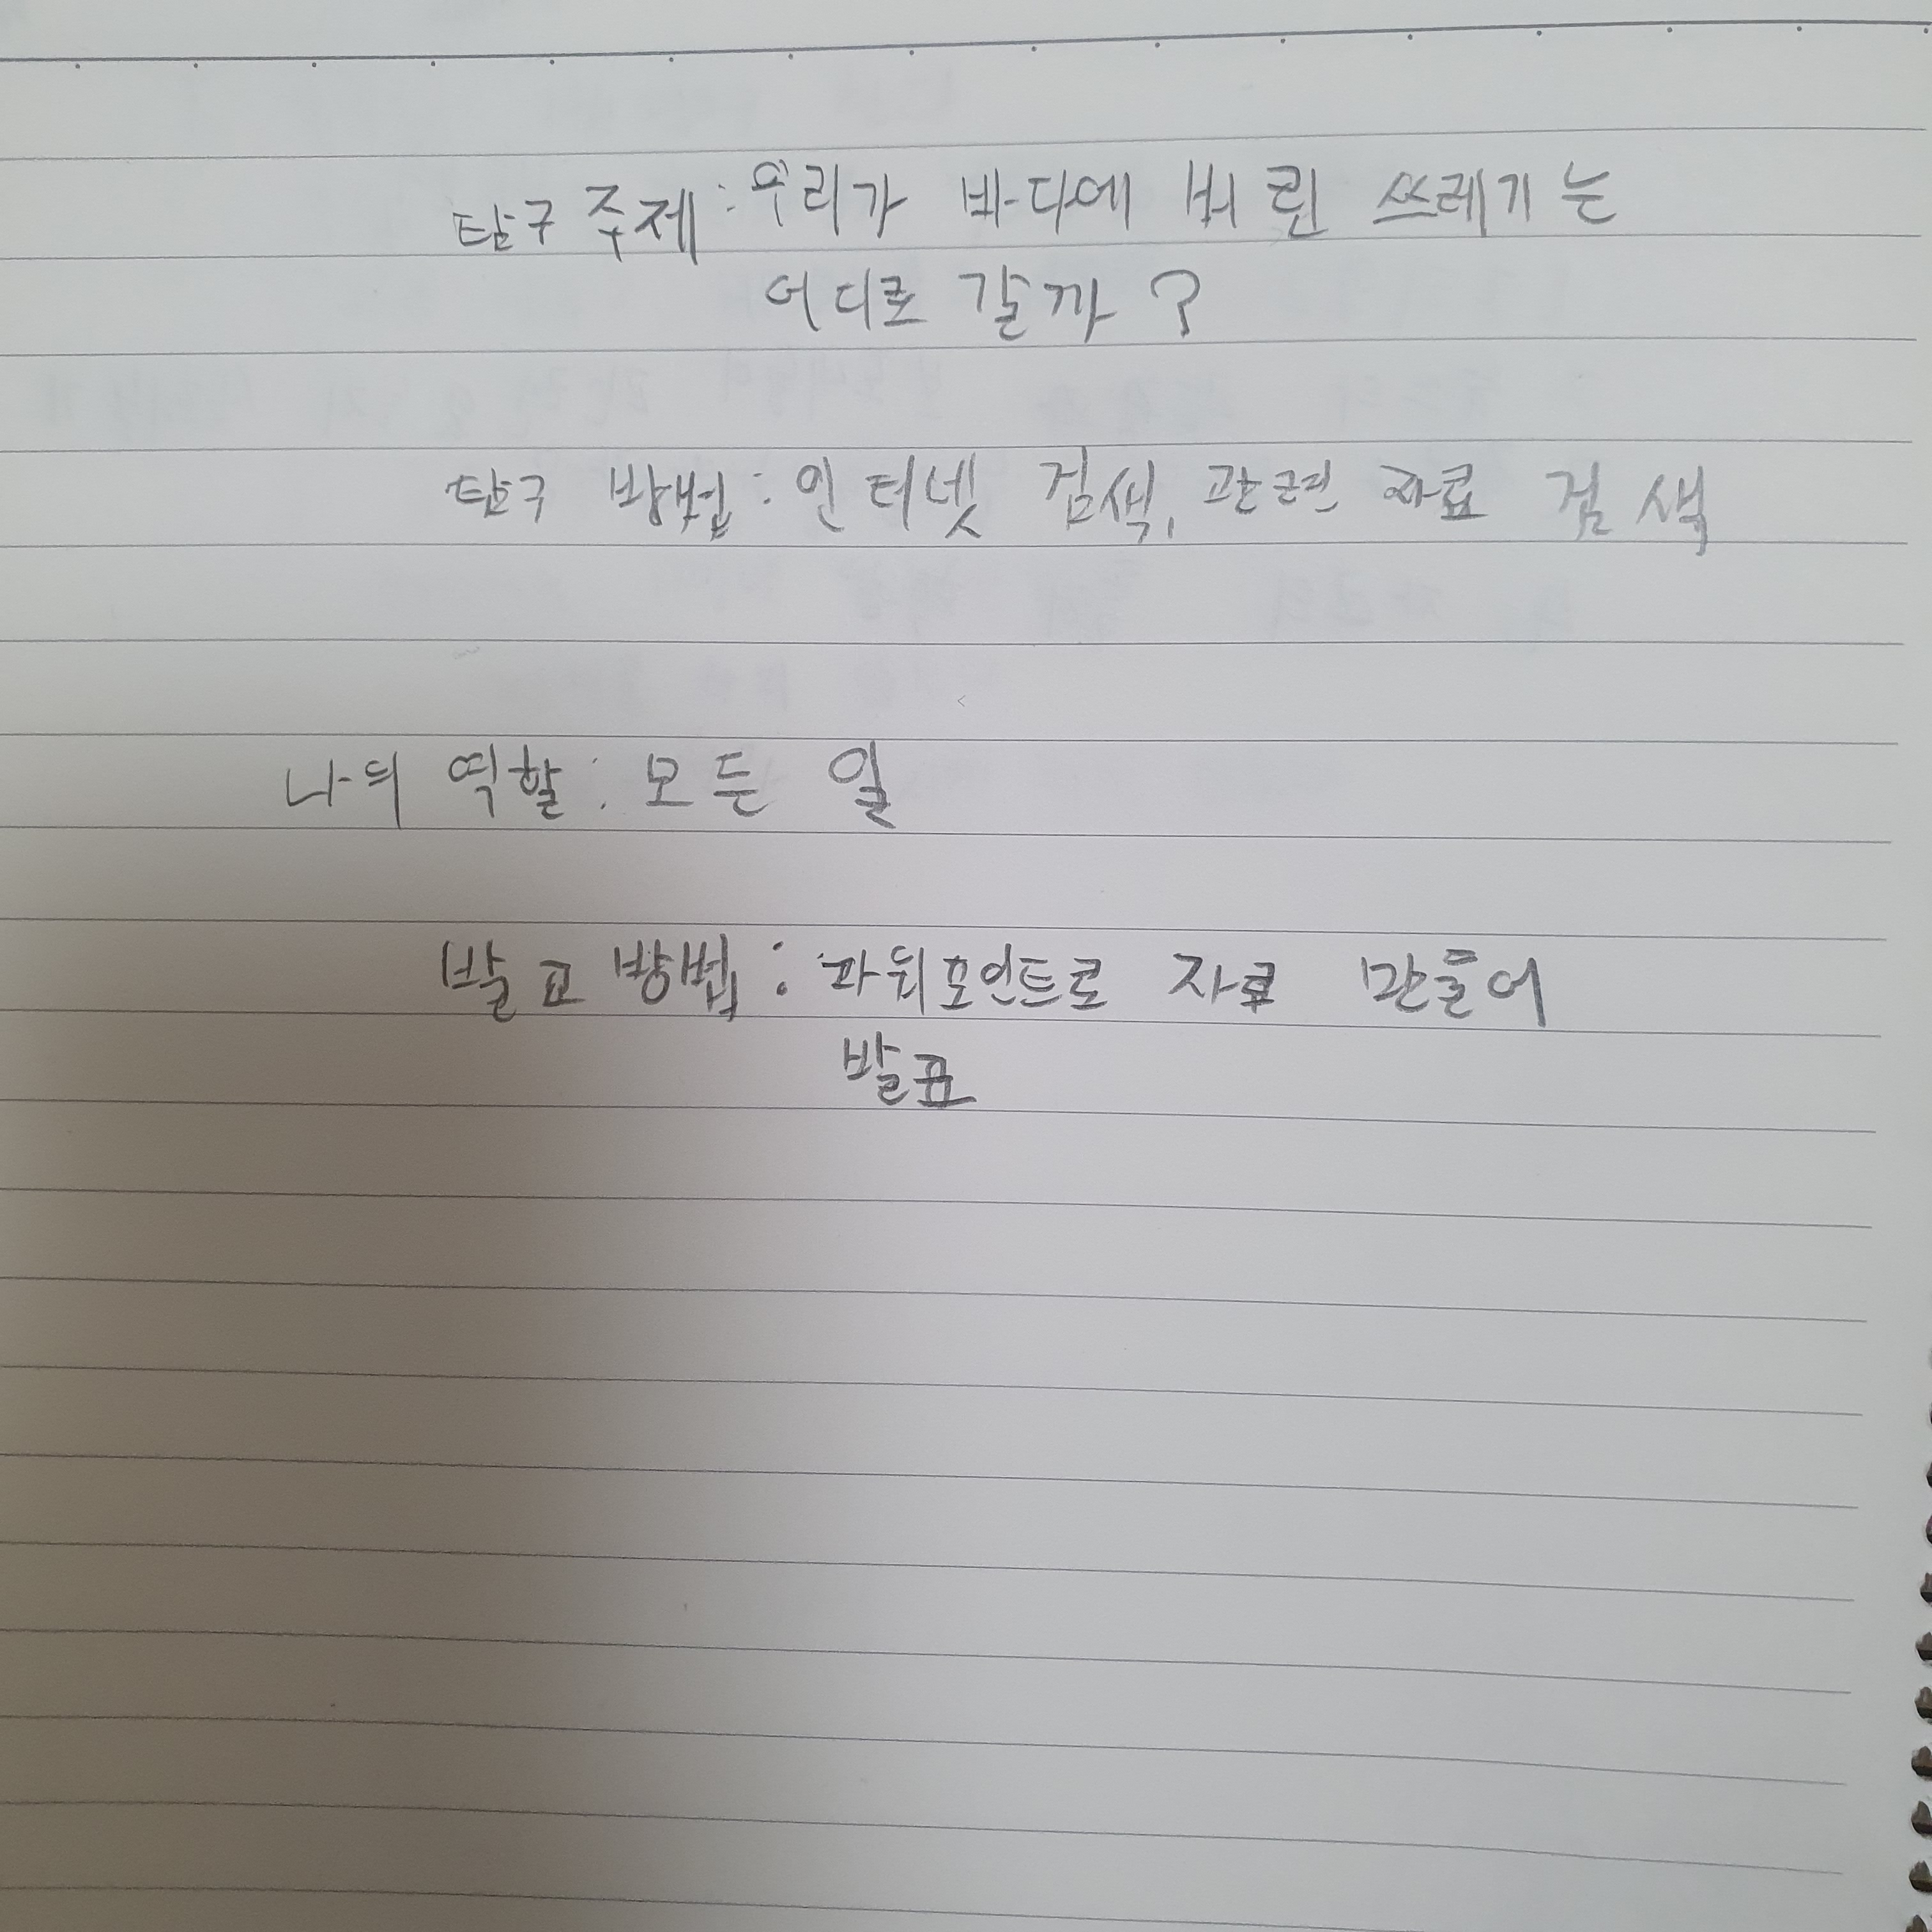 탐구 주제 : 우리가 바다에 버린 쓰레기는
어디로 갈까?
탐구 방법 : 인터넷 검색, 관련 자료 검색
나의 역할 : 모든 일
발표 방법 : 파워포인트로 자료 만들어
발표